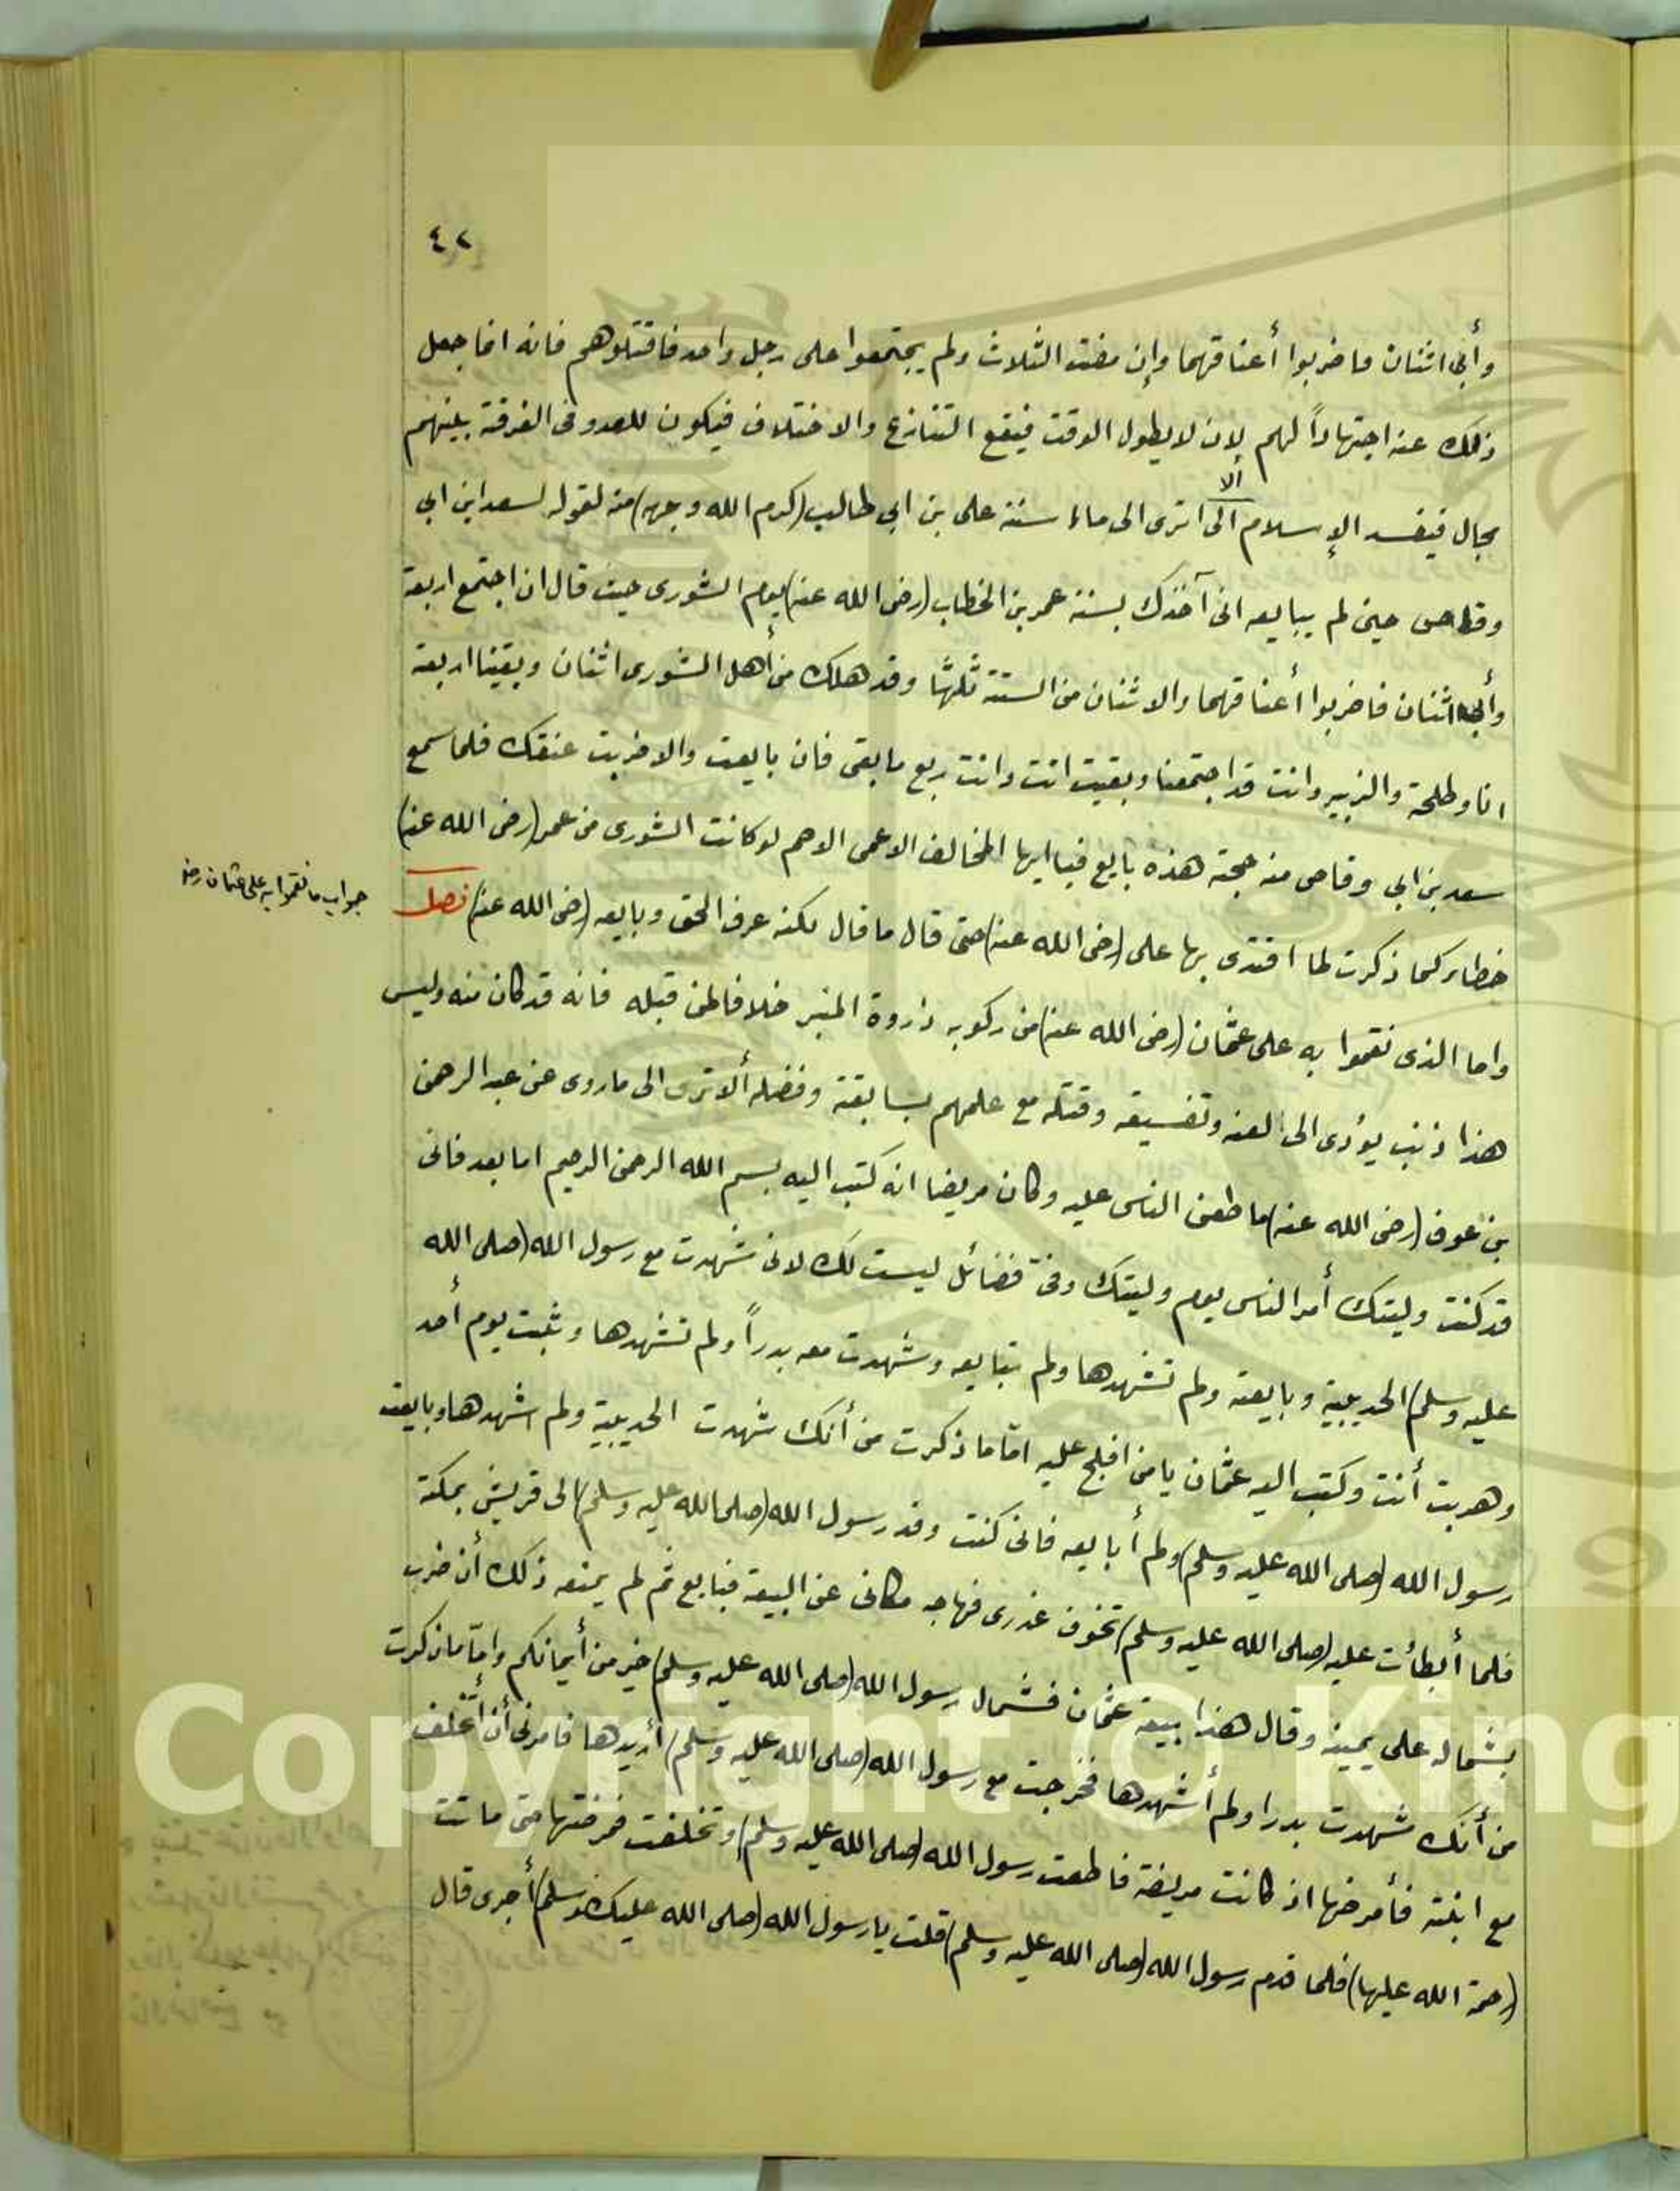 ٤٢
وأبى اثنان فاضربوا أعناقهما وإن مضت الثلاث ولم يجتمعوا على رجل واحد فاقتلوهم فانه انما جعل
ذلك عنه اجتهاداً لهم لان لا يطول الوقت فيقع التنازع والاختلاف فيكون للعدو في الفرقة بينهم
ألا
مجال فيفسد الإسلام الى اترى الى ما سنة على بن ابي طالب (كرم الله وجهه) منه لقوله لسعد ابن ابي
وقاص حين لم يبايعه اني آخذك بسنة عمر بن الخطاب (رضى الله عنه) يوم الشورى حيث قال ان اجتمع اربعة
وأبى اثنان فاضربوا أعناقهما والاثنان من الستة ثلثها وقد هلك من أهل الشورى اثنان وبقينا اربعة
انا وطلحة والزبير وانت قد اجتمعنا وبقيت انت وانت ربع ما بقى فان بايعت والا ضربت عنقك فلما سمع
سعد بن ابي وقاص منه حجته هذه بايع فيا ايها المخالف الاعمى الاصم لو كانت الشورى من عمر (رضى الله عنه)
خطاء كما ذكرت لما اقتدى بها على (رضى الله عنه) حتى قال ما قال لكنه عرف الحق وبايعه (رضى الله عنه) فصل
جواب ما نقموا به على عثمان رضـ
واما الذى نقموا به على عثمان (رضى الله عنه) من ركوبه ذروة المنبر خلافا لمن قبله فانه قد كان منه وليس
هذا ذنب يؤدى الى لعنه وتفسيقه وقتله مع علمهم بسابقته وفضله ألا ترى الى ما روى عن عبد الرحمن
بن عوف (رضى الله عنه) ما طعن الناس عليه وكان مريضا انه كتب اليه بسم الله الرحمن الرحيم اما بعد فانى
قد كنت وليتك أمر الناس يوم وليتك وفيّ فضائل ليست لك لانى شهدت مع رسول الله (صلى الله
عليه وسلم) الحديبية وبايعته ولم تشهدها ولم تبايعه وشهدت معه بدراً ولم تشهدها وثبت يوم أحد
وهربت أنت وكتب اليه عثمان يا من افلج عليه امّا ما ذكرت من أنك شهدت الحديبية ولم اشهدها وبايعت
رسول الله (صلى الله عليه وسلم) ولم أبايعه فانى كنت وفد رسول الله (صلى الله عليه وسلم) الى قريش بمكة
فلما أبطأت عليه (صلى الله عليه وسلم) تخوف غدرى فهاجه مكانى عن البيعة فبايع ثم لم يمنعه ذلك أن ضرب
بشماله على يمينه وقال هذا بيعة عثمان فشمال رسول الله (صلى الله عليه وسلم) خير من أيمانكم وامّا ما ذكرت
من أنك شهدت بدرا ولم أشهدها فخرجت مع رسول الله (صلى الله عليه وسلم) أريدها فامرنى أن أتخلف
مع ابنته فأمرضها اذ كانت مريضة فاطعت رسول الله (صلى الله عليه وسلم) وتخلفت فمرضتها حتى ماتت
(رحمة الله عليها) فلما قدم رسول الله (صلى الله عليه وسلم) قلت يا رسول الله (صلى الله عليك وسلم) أجرى قال
Copyright © King